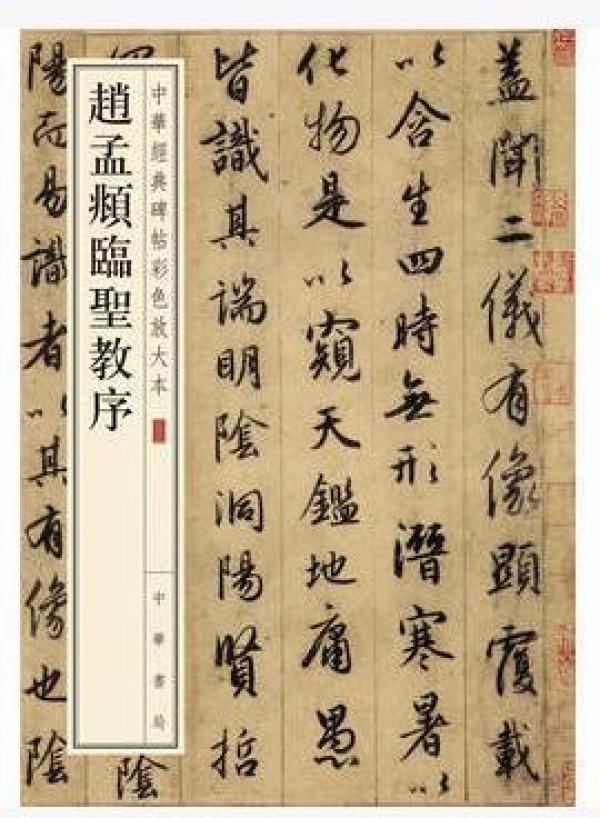 盖聞二儀有像顯覆載
以含生四時無形潛寒暑以
化物是以窺天鑑地庸愚
皆識其端明陰洞陽賢哲
陰
陽而易識者以其有像也陰
趙孟頫臨聖教序
中華經典碑帖彩色放大本
中華書局